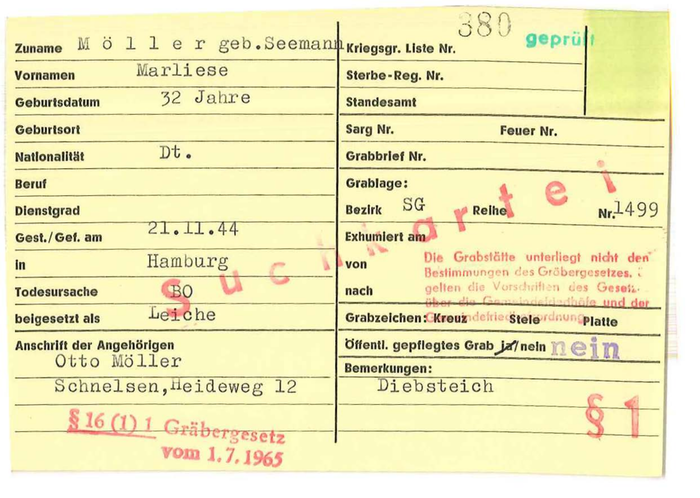 Zuname M ö l l e r geb.Seemann
Vornamen Marliese
Geburtsdatum 32 Jahre
Geburtsort
Nationalität Dt.
Beruf
Dienstgrad
Gest./Gef. am 21.11.44
in Hamburg
Todesursache BO
beigesetzt als Leiche
Anschrift der Angehörigen
Otto Möller
Schnelsen,Heideweg 12
§ 16 (1) 1 Gräbergesetz
vom 1.7.1965
380 geprüft
Kriegsgr. Liste Nr.
Sterbe-Reg. Nr.
Standesamt
Sarg Nr. Feuer Nr.
Grabbrief Nr.
Grablage:
Bezirk SG Reihe Nr.1499
Exhumiert am
von
nach
Die Grabstätte unterliegt nicht den
Bestimmungen des Gräbergesetzes.
gelten die Vorschriften des Gesetz
über die Gemeindefriedhöfe und der
Gemeindefriedhofsordnung
Grabzeichen: Kreuz Stele Platte
Öffentl. gepflegtes Grab ja/nein nein
Bemerkungen:
Diebsteich
§ 1
Suchkartei